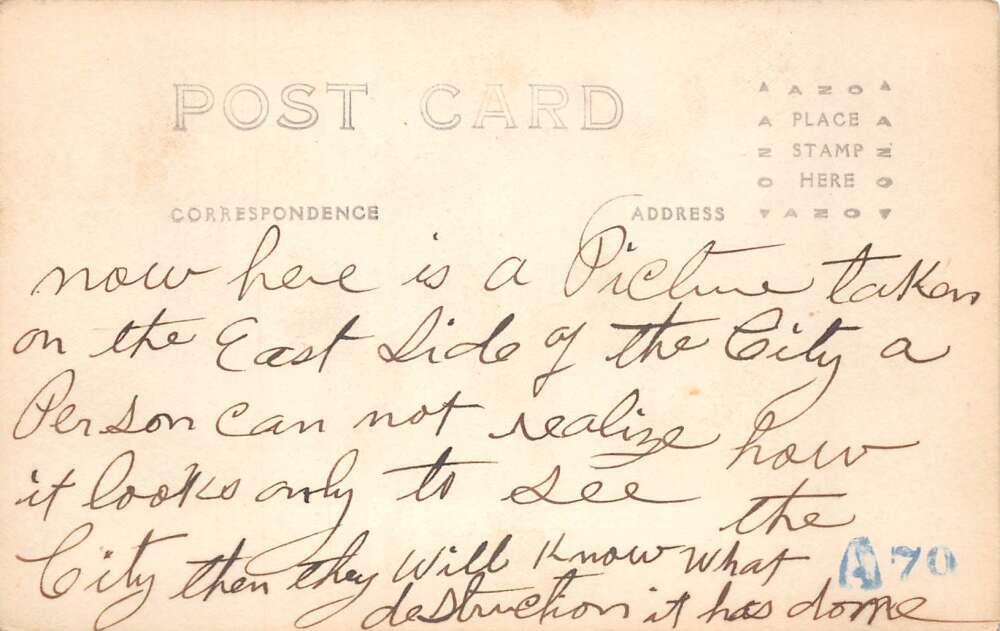 POST CARD
AZO
PLACE
STAMP
HERE
AZO
AZO
AZO
CORRESPONDENCE
ADDRESS
now here is a Picture taken
on the East Side of the City a
Person can not realize how
it looks only to see the
City then they Will Know What
destruction it has done
A 70